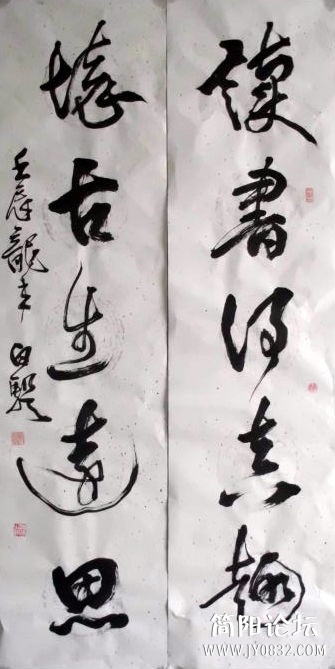 讀書得真趣
懷古生遠思
壬辰龍年 白
简阳论坛
WWW.JY0832.COM